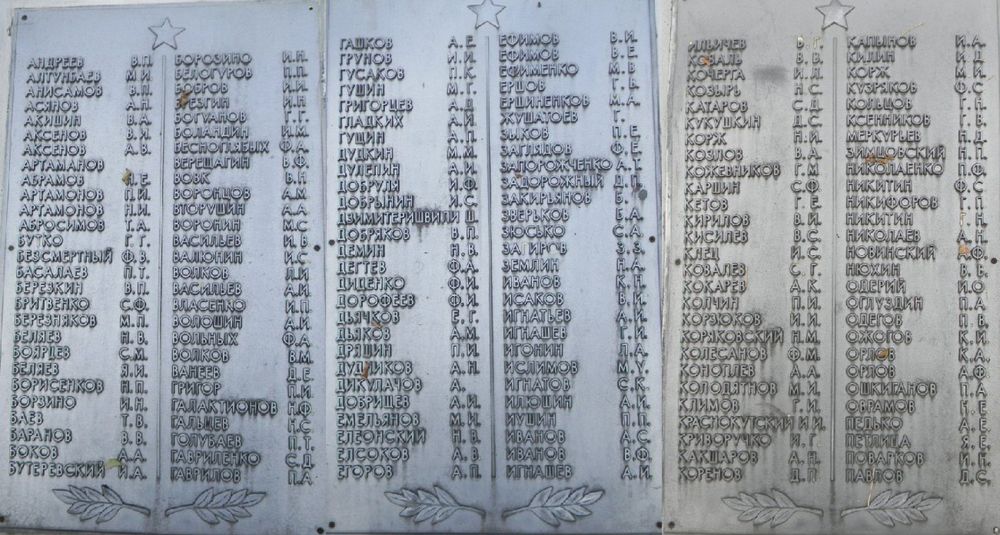 АНДРЕЕВ В.П.
АЛТУНБАЕВ М.И.
АНИСАМОВ В.П.
АСЯНОВ А.Н.
АКИШИН В.А.
АКСЕНОВ В.И.
АКСЕНОВ А.В.
АРТАМАНОВ
АБРАМОВ П.Е.
АРТАМОНОВ П.И.
АРТАМОНОВ Н.И.
АБРОСИМОВ Т.А.
БУТКО Г.Г.
БЕЗСМЕРТНЫЙ Ф.В.
БАСАЛАЕВ П.Т.
БЕРЕЗКИН В.П.
БРИТВЕНКО С.Ф.
БЕРЕЗНЯКОВ М.П.
БЕЛЯЕВ Н.В.
БОЯРЦЕВ С.М.
БЕЛЯЕВ Я.И.
БОРИСЕНКОВ Н.П.
БОРЗИНО И.Н.
БАЕВ Т.В.
БАРАНОВ В.В.
БОКОВ А.А.
БУТЕРЕВСКИЙ И.А.
БОРОЗИНО И.Н.
БЕЛОГУРОВ П.П.
БОБРОВ И.И.
БРЕЗГИН И.Н.
БОГУАНОВ Г.Г.
БОЛАНДИН И.М.
БЕСНОПЯБЫХ Ф.А.
ВЕРЕЩАГИН В.Ф.
ВОВК В.Н.
ВОРОНЦОВ А.М.
ВТОРУШИН А.А.
ВОРОНИН М.С.
ВАСИЛЬЕВ И.В.
ВАЛЮНИН И.С.
ВОЛКОВ Л.И.
ВАСИЛЬЕВ А.И.
ВЛАСЕНКО И.П.
ВОЛОШИН А.И.
ВОЛЬНЫХ Ф.А.
ВОЛКОВ В.М.
ВАНЕЕВ Д.Е.
ГРИГОР П.И.
ГАЛАКТИОНОВ Н.Ф.
ГАЛЬЦЕВ Н.С.
ГОЛУБАЕВ П.Т.
ГАВРИЛЕНКО С.Д.
ГАВРИЛОВ П.А.
ГАШКОВ А.Е.
ГРУНОВ И.И.
ГУСАКОВ П.К.
ГУШИН М.Г.
ГРИГОРЦЕВ А.Д.
ГЛАДКИХ А.И.
ГУЩИН А.П.
ДУДКИН М.М.
ДУЛЕПИН А.И.
ДОБРУЛЯ И.Ф.
ДОБРЫНИН И.С.
ДЗИМИТЕРИШВИЛИ Ш.
ДОБРЯКОВ В.П.
ДЕМИН Н.В.
ДЕГТЕВ Ф.А.
ДИДЕНКО Ф.И.
ДОРОФЕЕВ Ф.И.
ДЬЯЧКОВ Е.Г.
ДЬЯКОВ А.М.
ДРЯШИН П.И.
ДУДНИКОВ А.Н.
ДИКУЛАЧОВ А.
ДОБРИЩЕВ А.И.
ЕМЕЛЬЯНОВ М.И.
ЕЛЕОНСКИЙ Н.В.
ЕЛСОКОВ А.В.
ЕГОРОВ А.П.
ЕФИМОВ В.И.
ЕФИМОВ В.Е.
ЕФИМЕНКО М.В.
ЕРЦОВ Г.В.
ЕРШИНЕНКОВ М.А.
ЖУШАТОЕВ Г.
ЗЫКОВ П.Е.
ЗАГЛЯДОВ Ф.Е.
ЗАПОРОЖЧЕНКО А.Т.
ЗАДОРОЖНЫЙ Д.П.
ЗАКИРЬЯНОВ Б.
ЗВЕРЬКОВ Б.А.
ЗЮСЬКО С.А.
ЗАГИРОВ З.З.
ЗЕМЛИН Н.А.
ИВАНОВ К.Н.
ИСАКОВ В.И.
ИГНАТЬЕВ А.И.
ИГНАШЕВ Г.И.
ИГОНИН Л.А.
ИСЛИМОВ М.У.
ИГНАТОВ С.К.
ИЛЮШИН А.И.
ИУШИН П.П.
ИВАНОВ А.С.
ИВАНОВ В.Ф.
ИГНАШЕВ А.И.
ИЛЬИЧЕВ В.Г.
КОВАЛЬ В.В.
КОЧЕРГА И.Д.
КОЗЫРЬ Н.С.
КАТАРОВ С.Д.
КУКУШКИН Д.С.
КОРЖ Н.И.
КОЗЛОВ В.А.
КОЖЕВНИКОВ Г.М.
КАРШИН С.Ф.
КЕТОВ Г.Е.
КИРИЛОВ В.И.
КИСИЛЕВ В.С.
КНЕЦ И.С.
КОВАЛЕВ С.Г.
КОКАРЕВ А.К.
КОЛЧИН П.И.
КОРЗЮКОВ И.И.
КОРЯКОВСКИЙ Н.М.
КОЛЕСАНОВ Ф.М.
КОНОПЛЕВ А.А.
КОЛОДЯТНОВ М.И.
КЛИМОВ Г.И.
КРАСПОКУТСКИЙ И.И.
КРИВОРУЧКО И.Г.
КАКШАРОВ А.Н.
КОРЕНОВ Д.П.
КАПЫНОВ И.А.
КИЛИН И.Д.
КОРЖ М.И.
КУЗРЯКОВ Ф.С.
КОЛЬЦОВ Г.Н.
КСЕННИКОВ Г.В.
МЕРКУРЬЕВ Н.Д.
ЗИМЦОВСКИЙ Н.П.
НИКОЛАЕНКО П.Ф.
НИКИТИН Ф.С.
НИКИФОРОВ Г.П.
НИКИТИН Г.Н.
НИКОЛАЕВ А.Н.
НОВИНСКИЙ А.Ф.
НЮХИН В.В.
ОДЕРИЙ И.О.
ОГЛУЗДИН П.А.
ОДЕГОВ П.В.
ОЖОГОВ К.И.
ОРЛОВ К.А.
ОРЛОВ А.Ф.
ОШКИГАНОВ П.А.
ОВРАМОВ Н.Е.
ПЕДЬКО А.Е.
ПЕТЛИЦА Я.Е.
ПОВАРКОВ И.Н.
ПАВЛОВ Д.С.